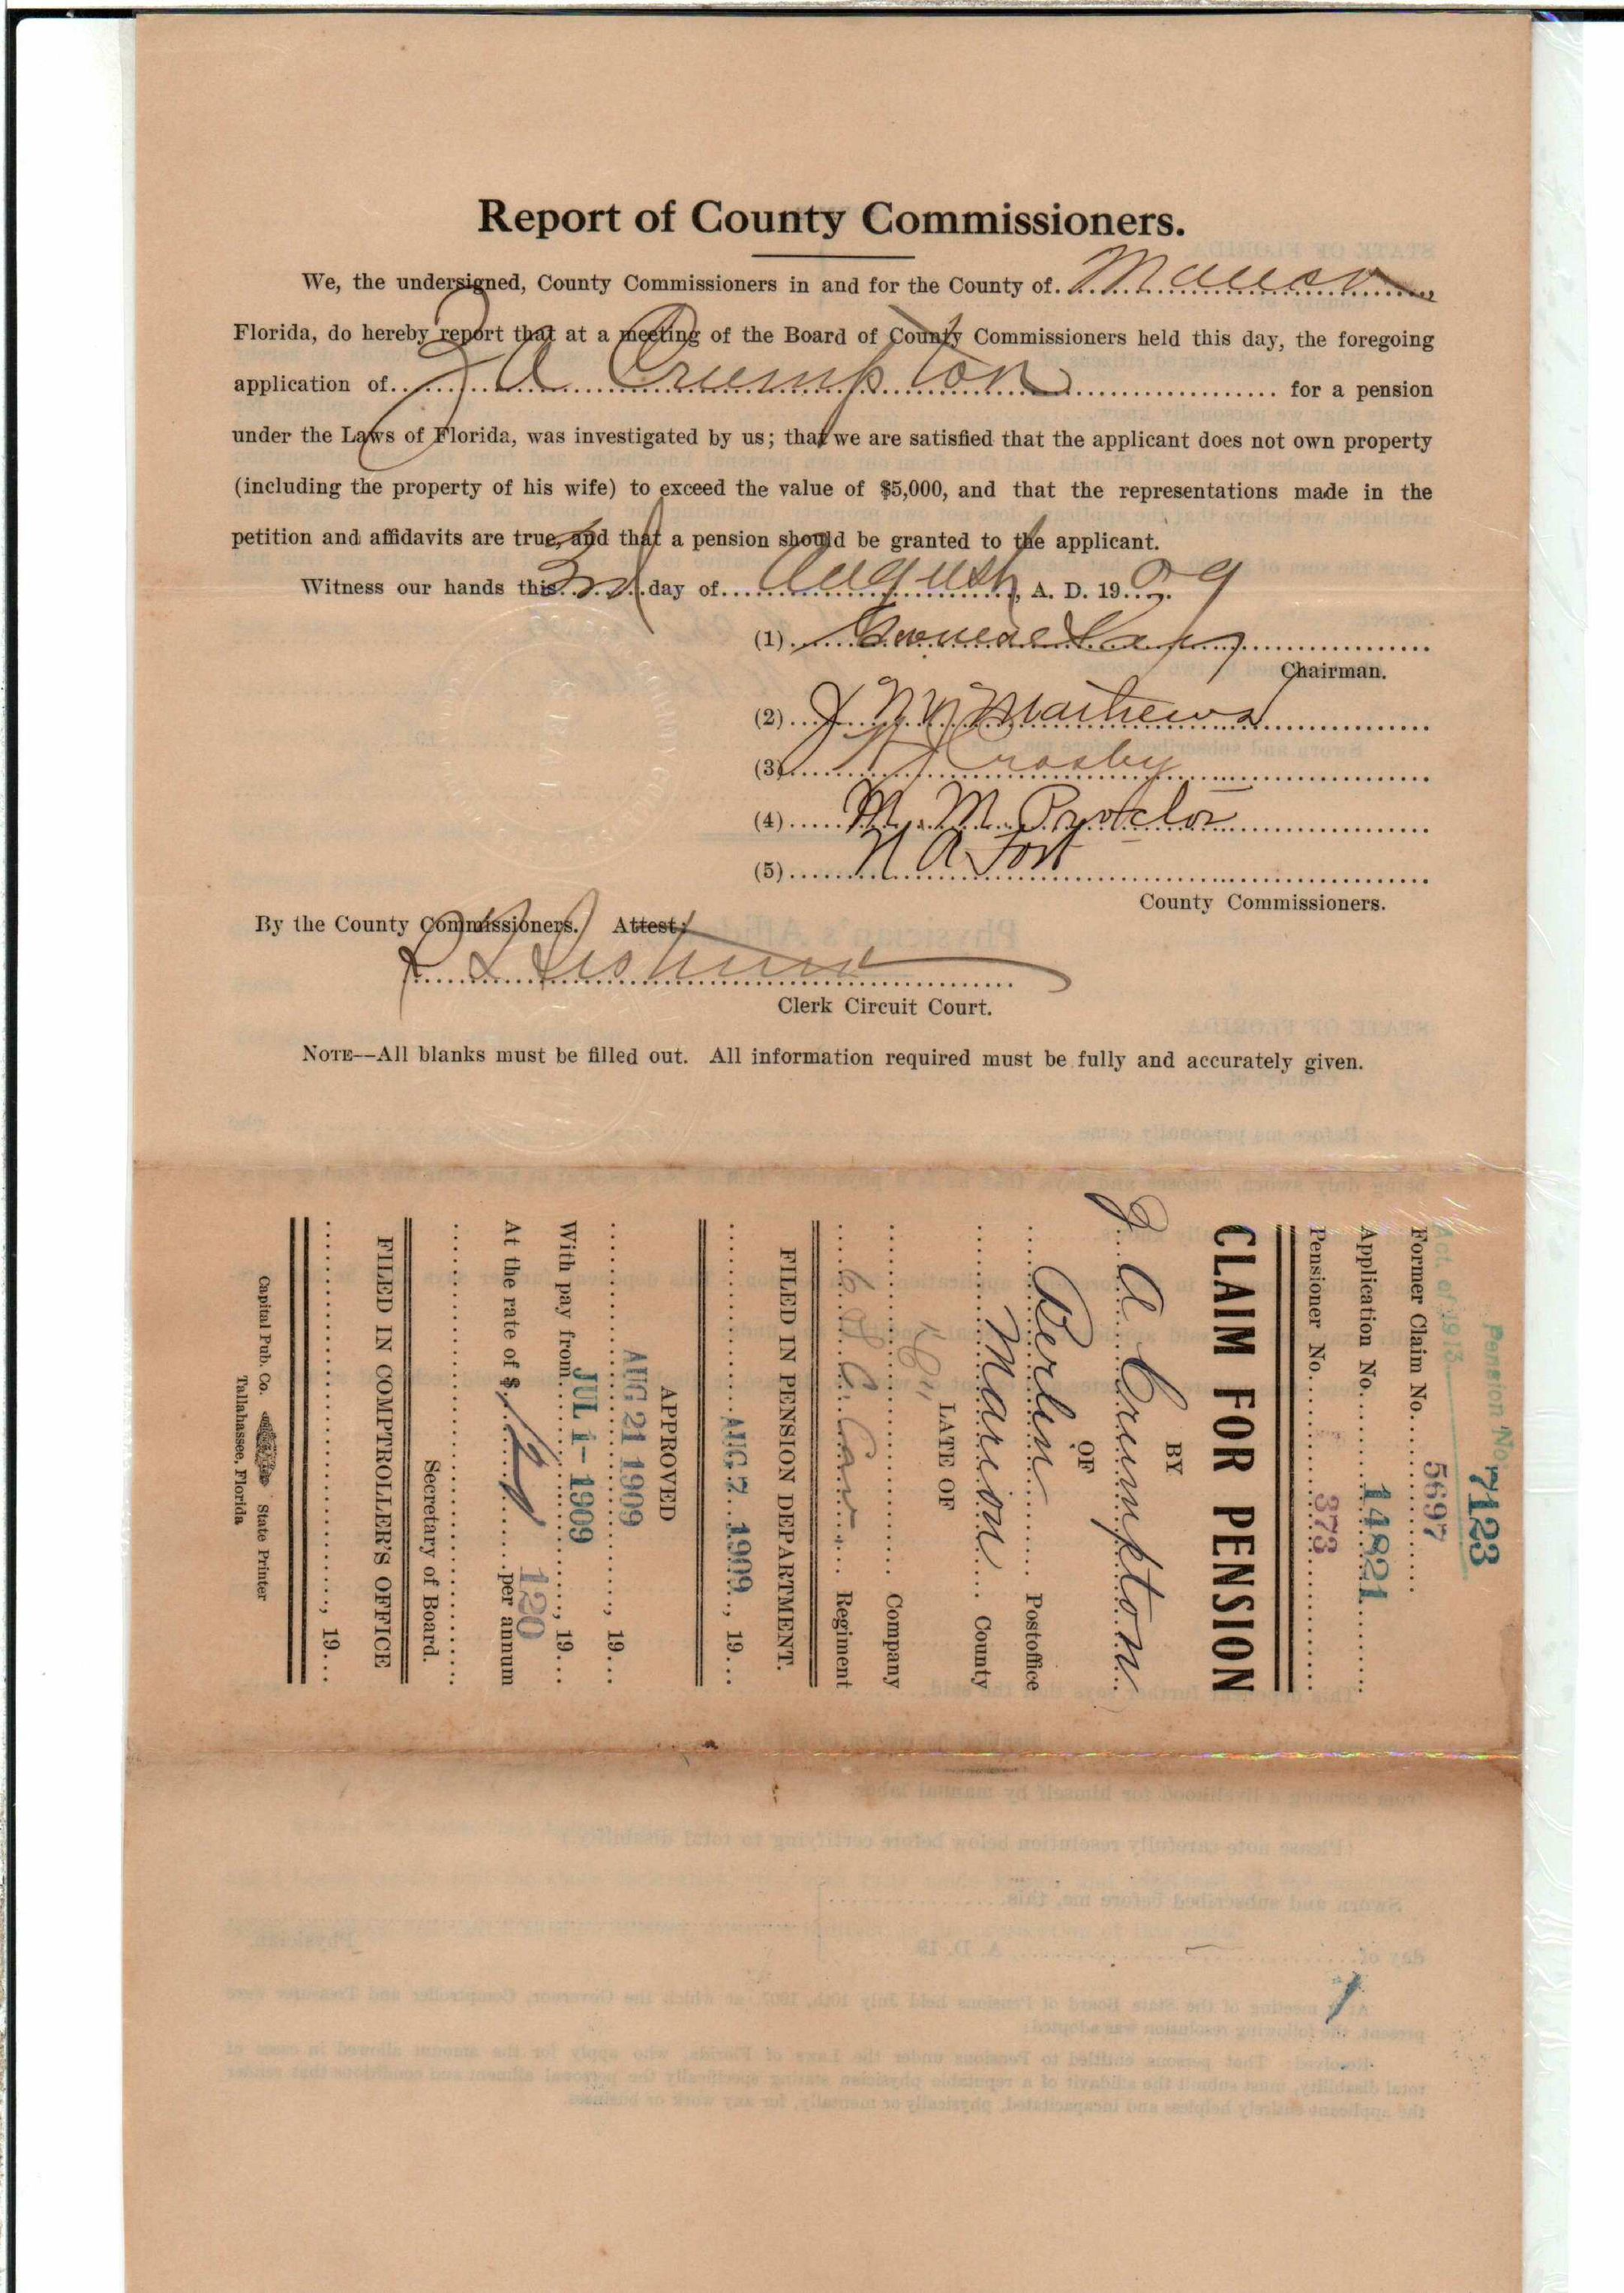 Report of County Commissioners.
We, the undersigned, County Commissioners in and for the County of Marion,
Florida, do hereby report that at a meeting of the Board of County Commissioners held this day, the foregoing
application of J A Crumpton for a pension
under the Laws of Florida, was investigated by us; that we are satisfied that the applicant does not own property
(including the property of his wife) to exceed the value of $5,000, and that the representations made in the
petition and affidavits are true, and that a pension should be granted to the applicant.
Witness our hands this 3rd day of August, A. D. 1909
(1)
Chairman.
(2) J M Mathews
(3) Crosby
(4) M. M. Proctor
(5) N A Fort
County Commissioners.
By the County Commissioners. Attest:
Clerk Circuit Court.
NOTE--All blanks must be filled out. All information required must be fully and accurately given.
Pension No. 7123
Act of 1913
Former Claim No. 5697
Application No. 14821
Pensioner No. 373
CLAIM FOR PENSION
BY
J A Crumpton
OF
Berlin Postoffice
Marion County
LATE OF
"C" Company
6 S. C. Cav. Regiment
FILED IN PENSION DEPARTMENT.
AUG 7 1909, 19
APPROVED
AUG 21 1909, 19
With pay from JUL 1- 1909, 19
At the rate of $ 120 per annum
Secretary of Board.
FILED IN COMPTROLLER'S OFFICE
, 19
Capital Pub. Co. State Printer
Tallahassee, Florida